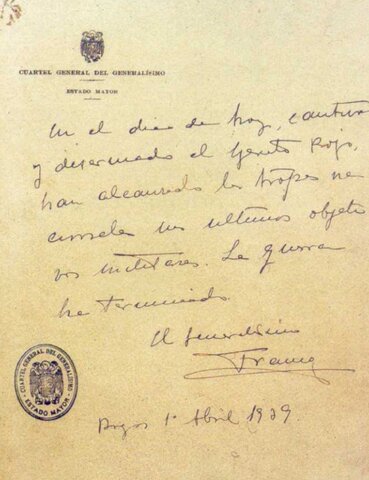 CUARTEL GENERAL DEL GENERALÍSIMO
ESTADO MAYOR
En el dia de hoy, cautivo
y desarmado el Ejercito Rojo,
han alcanzado las tropas na
cionales sus ultimos objeti
vos militares. La guerra
ha terminado.
El Generalisimo
Franco
Burgos 1º Abril 1939
CUARTEL GENERAL DEL GENERALISIMO
ESTADO MAYOR